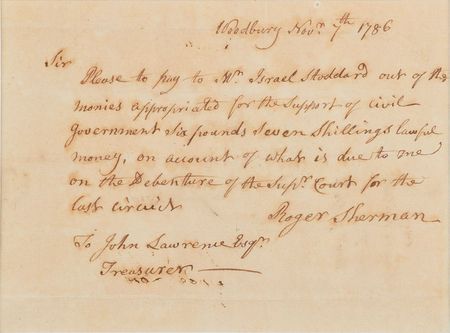 Woodbury Novr. 7th 1786
Sir
Please to pay to Mr. Israel Stoddard out of the
monies appropriated for the Support of civil
Government Six pounds Seven Shillings lawful
money, on account of what is due to me
on the Debenture of the Supr. Court for the
last circuit
Roger Sherman
To John Lawrence Esqr.
Treasurer